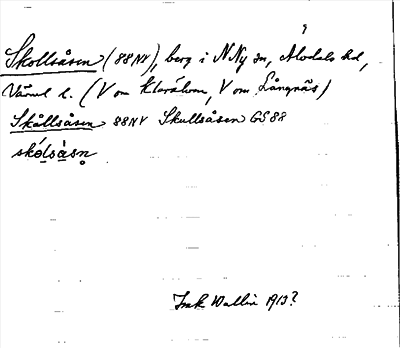 Skollsåsen (88NV), berg i N Ny sn, Älvdals hd,
Värml l. (V om Klarälven, V om Långnäs)
Skållsåsen 88NV Skullsåsen GS88
skólsàsn̥
Isak Wallin 1913?